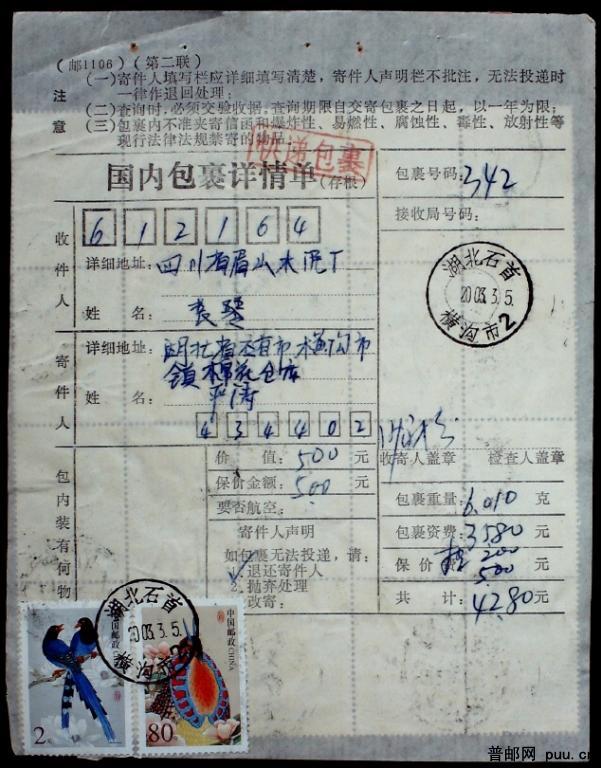 (邮1106)(第二联)
注意
(一)寄件人填写栏应详细填写清楚，寄件人声明栏不批注，无法投递时
一律作退回处理；
(二)查询时，必须交验收据；查询期限自交寄包裹之日起，以一年为限；
(三)包裹内不准夹寄信函和爆炸性、易燃性、腐蚀性、毒性、放射性等
现行法律法规禁寄的物品。
快递包裹
国内包裹详情单(存根)
包裹号码：342
接收局号码：
收件人
6 1 2 1 6 4
详细地址：四川省眉山水泥厂
姓 名：袁琴
湖北石首
2003.3.5.
横沟市2
寄件人
详细地址：湖北省石首市横沟市
镇棉花仓库
姓 名：
4 3 4 4 0 2
包内装有何物
价 值：500 元
保价金额：500 元
要否航空：
寄件人声明
如包裹无法投递，请：
1.退还寄件人
2.抛弃处理
改寄：
收寄人盖章 检查人盖章
包裹重量：6.010 克
包裹资费：3580 元
保 价 费： 200 元
500
共 计：42.80 元
湖北石首
2003.3.5.
中国邮政
2
中国邮政 CHINA
80
普邮网 puu.cn